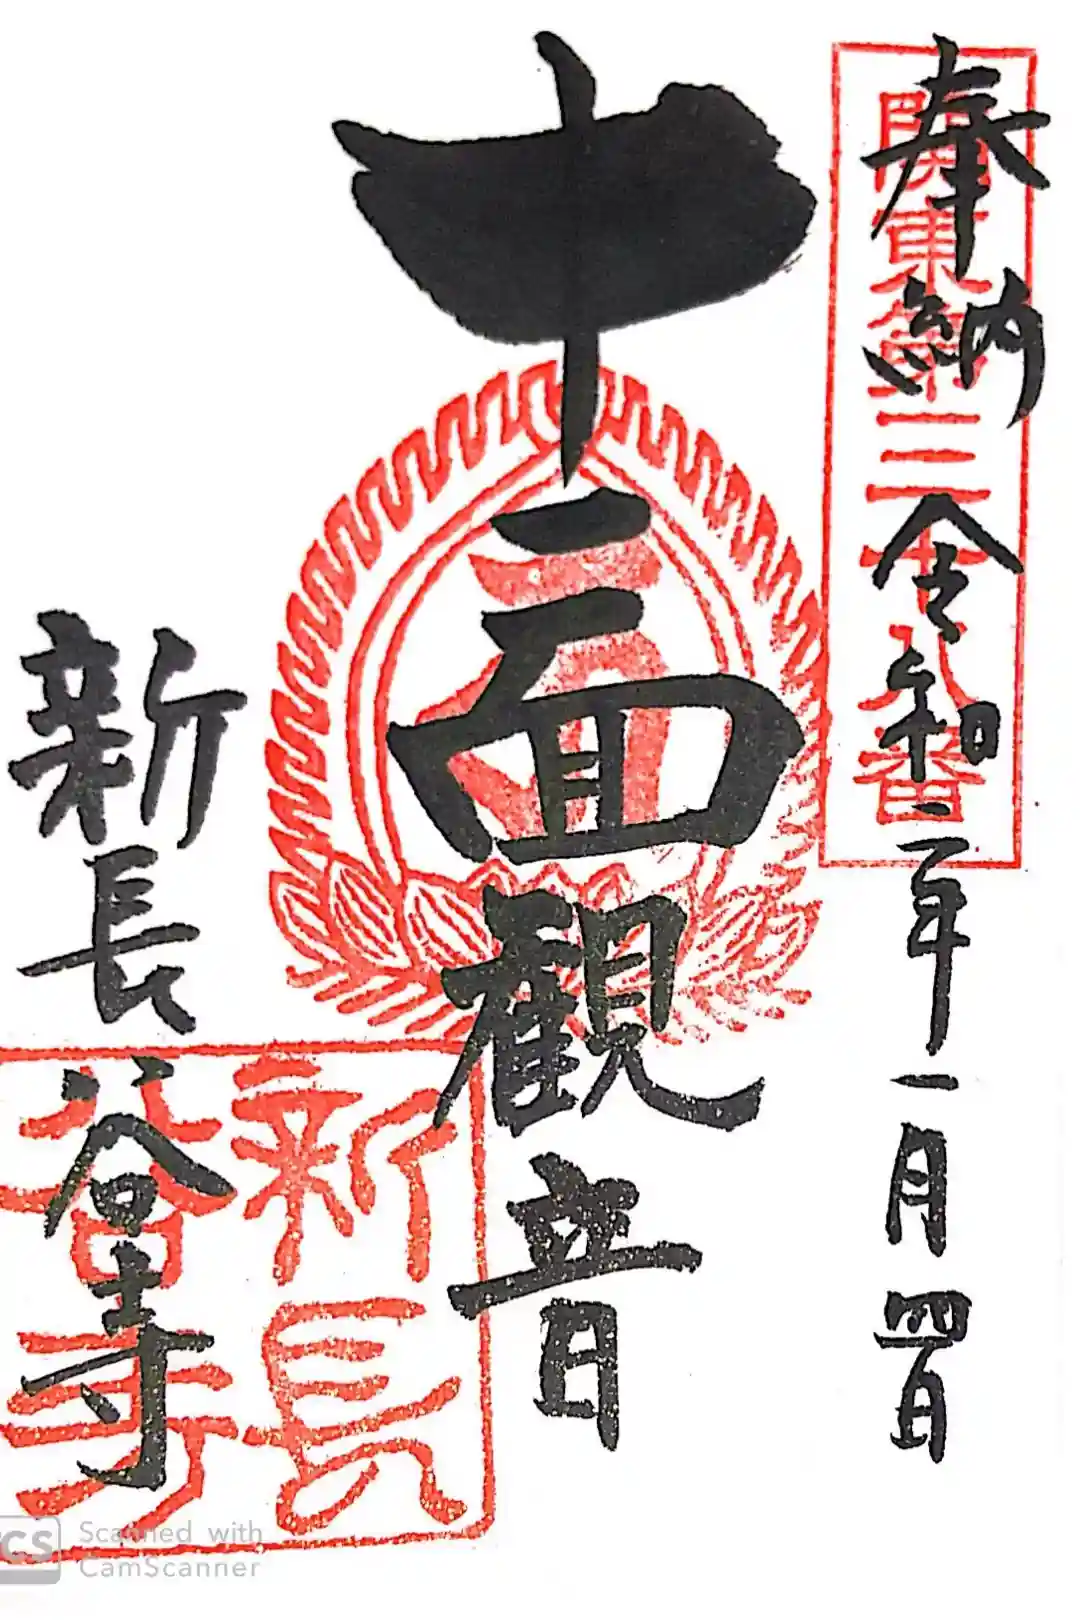 関東第三十八番
奉納 令和二年一月四日
十一面観音
新長谷寺
新長谷寺
CS Scanned with
CamScanner